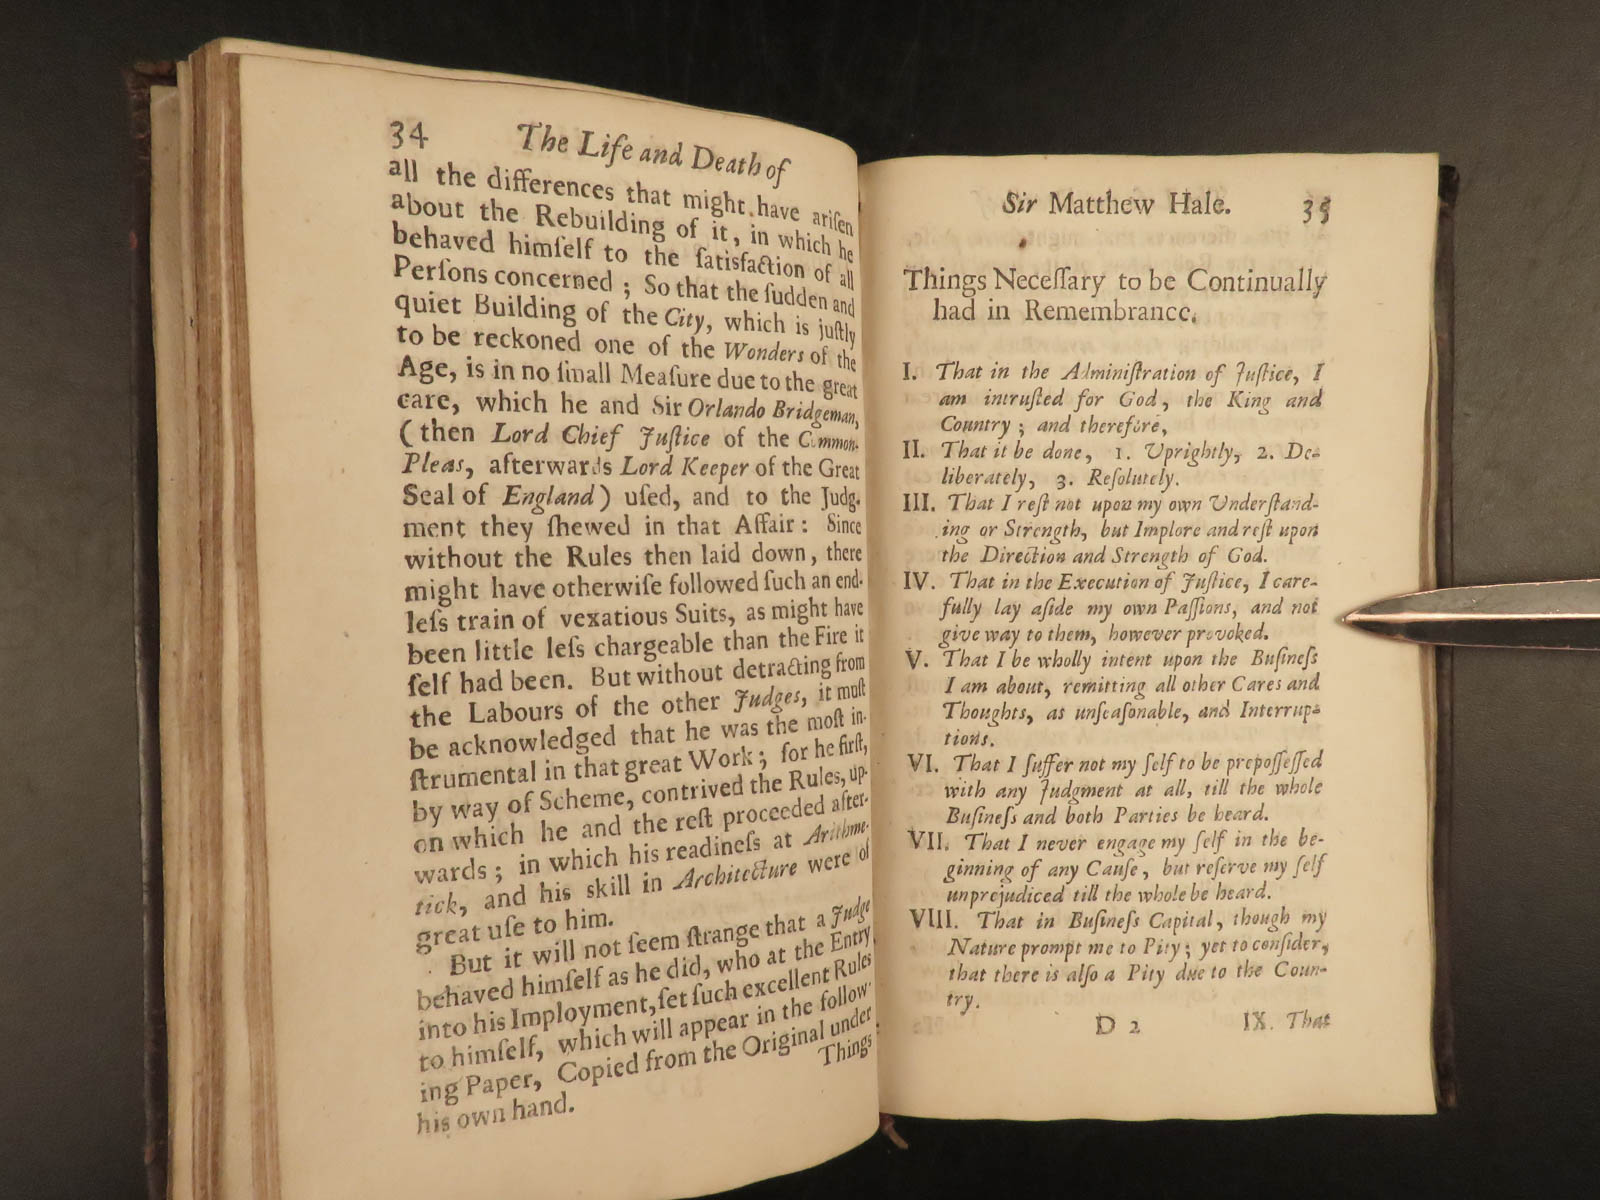 34 The Life and Death of
all the differences that might have ariſen
about the Rebuilding of it, in which he
behaved himſelf to the ſatisfaction of all
Perſons concerned ; So that the ſudden and
quiet Building of the City, which is juſtly
to be reckoned one of the Wonders of the
Age, is in no ſmall Meaſure due to the great
care, which he and Sir Orlando Bridgeman,
(then Lord Chief Juſtice of the Common-
Pleas, afterwards Lord Keeper of the Great
Seal of England) uſed, and to the Judg-
ment they ſhewed in that Affair : Since
without the Rules then laid down, there
might have otherwiſe followed ſuch an end-
leſs train of vexatious Suits, as might have
been little leſs chargeable than the Fire it
ſelf had been. But without detracting from
the Labours of the other Judges, it muſt
be acknowledged that he was the moſt in-
ſtrumental in that great Work ; for he firſt,
by way of Scheme, contrived the Rules, up-
on which he and the reſt proceeded after-
wards ; in which his readineſs at Arithme-
tick, and his skill in Architecture were of
great uſe to him.
But it will not ſeem ſtrange that a Judge
behaved himſelf as he did, who at the Entry
into his Imployment, ſet ſuch excellent Rules
to himſelf, which will appear in the follow-
ing Paper, Copied from the Original under
his own hand.
Things
Sir Matthew Hale. 35
Things Neceſſary to be Continually
had in Remembrance.
I. That in the Adminiſtration of Juſtice, I
am intruſted for God, the King and
Country ; and therefore,
II. That it be done, 1. Uprightly, 2. De-
liberately, 3. Reſolutely.
III. That I reſt not upon my own Underſtand-
ing or Strength, but Implore and reſt upon
the Direction and Strength of God.
IV. That in the Execution of Juſtice, I care-
fully lay aſide my own Paſſions, and not
give way to them, however provoked.
V. That I be wholly intent upon the Buſineſs
I am about, remitting all other Cares and
Thoughts, as unſeaſonable, and Interrup-
tions.
VI. That I ſuffer not my ſelf to be prepoſſeſſed
with any Judgment at all, till the whole
Buſineſs and both Parties be heard.
VII. That I never engage my ſelf in the be-
ginning of any Cauſe, but reſerve my ſelf
unprejudiced till the whole be heard.
VIII. That in Buſineſs Capital, though my
Nature prompt me to Pity ; yet to conſider,
that there is alſo a Pity due to the Coun-
try.
D 2 IX. That